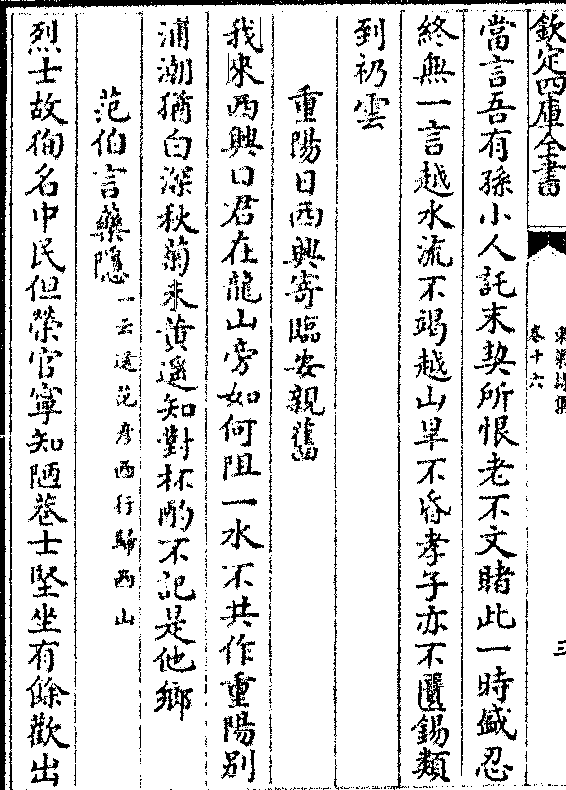 欽定四庫全書
卷十六
三
當言吾有孫小人託末契所恨老不文睹此一時盛忍
終無一言越水流不竭越山旱不昏孝子亦不匱錫類
到礽雲
重陽日西興寄臨安親舊
我來西興口君在龍山旁如何阻一水不共作重陽別
浦潮猶白深秋菊未黃遥知對杯酌不記是他鄉
范伯言藥隱一云送范彦西行歸西山
烈士故徇名中民但榮官寧知陋巷士堅坐有餘歡出